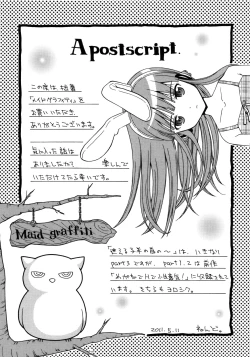 A postscript.
この度は、拙著
「メイドグラフィティ」を
お買いいただき
ありがとうございます。
気に入った話は
ありましたか? 楽しんで
いただけてたら幸いです。
Maid graffiti
「迷える子羊の為の〜」は、いきなり
part3ですが、part1、2は前作
に収録されて
います。そちらもヨロシク。
2011.5.11